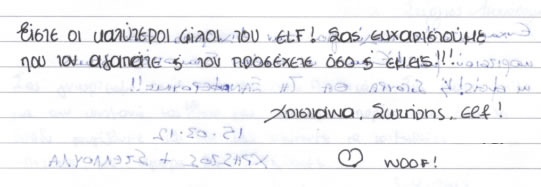 Είστε οι καλύτεροι φίλοι του ELF! Σας ευχαριστούμε
που τον αγαπάτε & τον προσέχετε όσο & εμείς!!!
Χριστιάνα, Σωτήρης, Elf!
15.03.12
♡ WOOF!